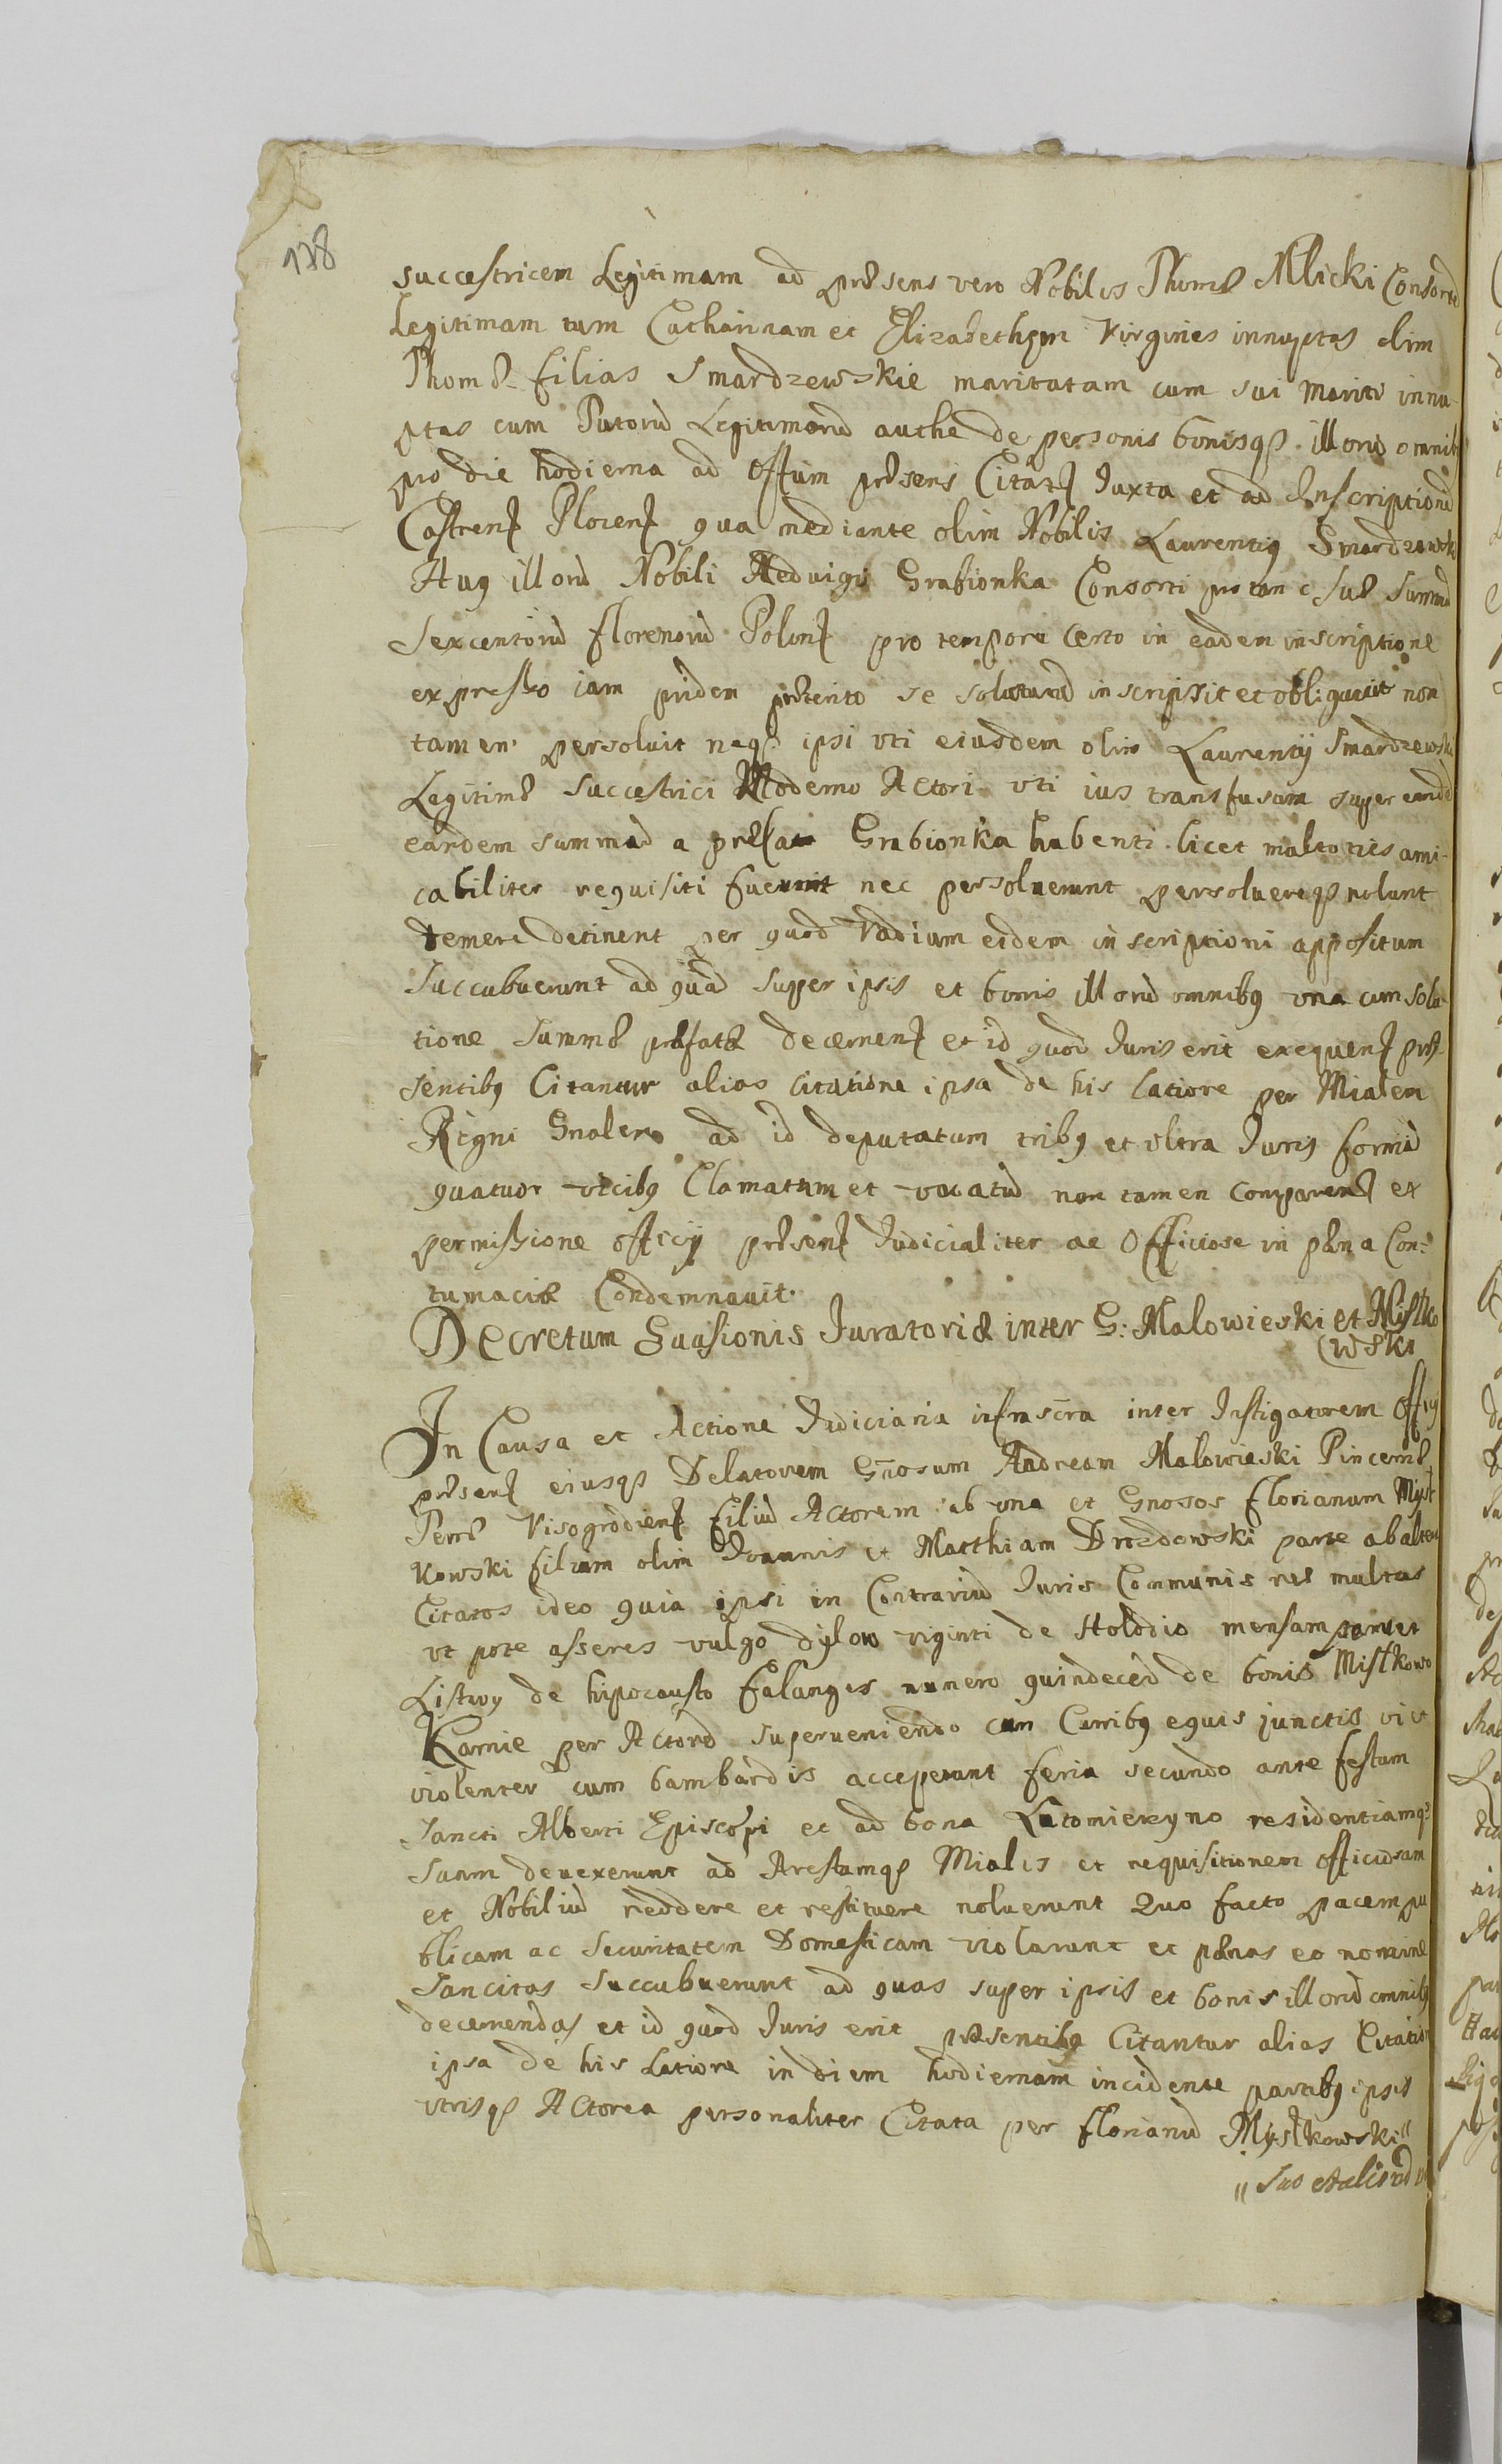 138
succestricem Legitimam ad præsens vero Nobilis Thomæ Milicki Consortē
Legitimam tum Catharinam et Elizabetham Virgines innuptas olim
Thomæ filias Smardzewskie maritatam cum sui Mariti innu-
ptas cum Tutorū Legitimorū authe de personis bonisqȝ illorū omnibȝ
pro die hodierna ad Offum præsens Citatȝ Juxta et ad Inscriptionē
Castrenȝ Plocenȝ qua mediante olim Nobilis Laurentiȝ Smardzewski
Auȝ illorū Nobili Heduigi Grabionka Consorti pro tunc suæ summā
Sexcentorū florenorū Polonȝ pro tempore certo in eadem inscriptione
expresso iam pridem præterito se soluturū inscripsit et obligauit non
tamen persoluit neqȝ ipsi vti eiusdem olim Laurentij Smardzewski
Legitimæ Succestrici Moderno Actori vti ius transfusum super eandē
eandem summā a præfata Grabionka habenti licet multoties ami-
cabiliter requisiti fuerunt nec persoluerunt persoluereqȝ nolunt
temere detinent per quod Vadium eidem inscriptioni appositum
Succubuerunt ad quod super ipsis et bonis illorū omnibȝ vna cum solu-
tione Summæ præfatæ decernenȝ et id quod Juris erit exequenȝ præ-
sentibȝ Citantur alias citatione ipsa de his latiore per Mialem
Regni Gnalem ad id deputatum tribȝ et vltra Juris formā
quatuor vicibȝ Clamatum et vocatū non tamen comparenȝ ex
permissione officij præsenȝ Judicialiter ac Officiose in pæna Con-
tumaciæ Condemnauit.
Decretum Euasionis Juratoriæ inter G: Malowieski et Mistko
(wski
In Causa et Actione Judiciaria infrascra inter Instigatorem Offij
præsenȝ eiusqȝ Delatorem Gnosum Andream Malowieski Pincernæ
Terræ Visogrodienȝ filiū Actorem ab vna et Gnosos Florianum Myst
kowski filium olim Joannis et Matthiam Drozdowski parte ab altera
Citatos ideo quia ipsi in Contrariū Juris Communis res multas
vt pote asseres vulgo dylow viginti de Stolodio mensam
Listwy de hipocausto falanges numero quindecēd de bonis Mistkowo
Karnie per Actorē superueniendo cum Curribȝ equis junctis vi et
violenter cum bambardis acceperunt feria secunda ante festum
Sancti Alberti Episcopi et ad bona Lutomierzyno residentiamqȝ
suam deuexerunt ad Arestamqȝ Mialis et requisitionem officiosam
et Nobiliū reddere et restituere noluerunt Quo facto pacem pu
blicam ac Securitatem Domesticam violarunt et pænas eo nomine
Sancitas Succubuerunt ad quas super ipsis et bonis illorū omnibȝ
decernendas et id quod Juris erit præsentibȝ Citantur alias Citatio
ipsa de his Latiore in diem hodiernam incidente partibȝ ipsis
vtrisqȝ Actorea personaliter Citata per Florianū Mystkowski"
"suo et aliorū